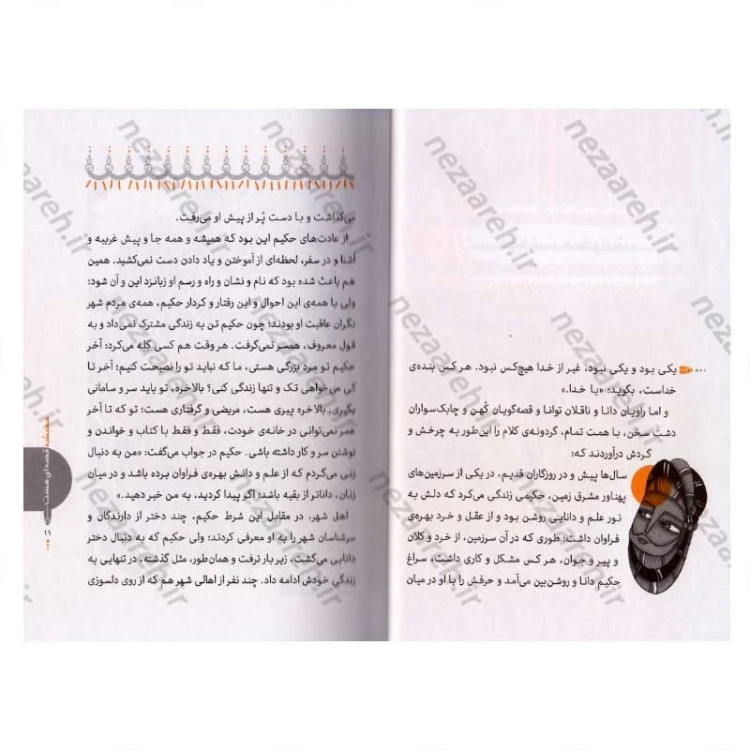 یکی بود و یکی نبود، غیر از خدا هیچ‌کس نبود. هر کس بنده‌ی
خداست، بگوید: «یا خدا.»
و اما راویان دانا و ناقلان توانا و قصه‌گویان کُهن و چابک‌سواران
دشت سخن، با همت تمام، گردونه‌ی کلام را این‌طور به چرخش و
گردش درآورده‌اند که:
سال‌ها پیش و در روزگاران قدیم، در یکی از سرزمین‌های
پهناور مشرق زمین، حکیمی زندگی می‌کرد که دلش به
نور علم و دانایی روشن بود و از عقل و خرد بهره‌ی
فراوان داشت؛ طوری که در آن سرزمین، از خرد و کلان
و پیر و جوان، هر کس مشکل و کاری داشت، سراغ
حکیم دانا و روشن‌بین می‌آمد و حرفش را با او در میان
می‌گذاشت و با دست پُر از پیش او می‌رفت.
از عادت‌های حکیم این بود که همیشه و همه جا و پیش غریبه و
آشنا و در سفر، لحظه‌ای از آموختن و یاد دادن دست نمی‌کشید. همین
هم باعث شده بود که نام و نشان و راه و رسم او زبانزد این و آن شود؛
ولی با همه‌ی این احوال و این رفتار و کردار حکیم، همه‌ی مردم شهر
نگران عاقبت او بودند؛ چون حکیم تن به زندگی مشترک نمی‌داد و به
قول معروف، همسر نمی‌گرفت. هر وقت هم کسی گله می‌کرد: «آخر
حکیم تو مرد بزرگی هستی، ما که نباید تو را نصیحت کنیم؛ آخر تا
کی می‌خواهی تک و تنها زندگی کنی؟ بالاخره، تو باید سر و سامانی
بگیری، بالاخره پیری هست، مریضی و گرفتاری هست؛ تو که تا آخر
عمر نمی‌توانی در خانه‌ی خودت، فقط و فقط با کتاب و خواندن و
نوشتن سر و کار داشته باشی. حکیم در جواب می‌گفت: «من به دنبال
زنی می‌گردم که از علم و دانش بهره‌ی فراوان برده باشد و در میان
زنان، داناتر از بقیه باشد؛ اگر پیدا کردید، به من خبر دهید.»
اهل شهر، در مقابل این شرط حکیم، چند دختر از دارندگان و
سرشناسان شهر را به او معرفی کردند؛ ولی حکیم که به دنبال دختر
دانایی می‌گشت، زیر بار نرفت و همان‌طور، مثل گذشته، در تنهایی به
زندگی خودش ادامه داد. چند نفر از اهالی شهر هم که از روی دلسوزی
nezaareh.ir